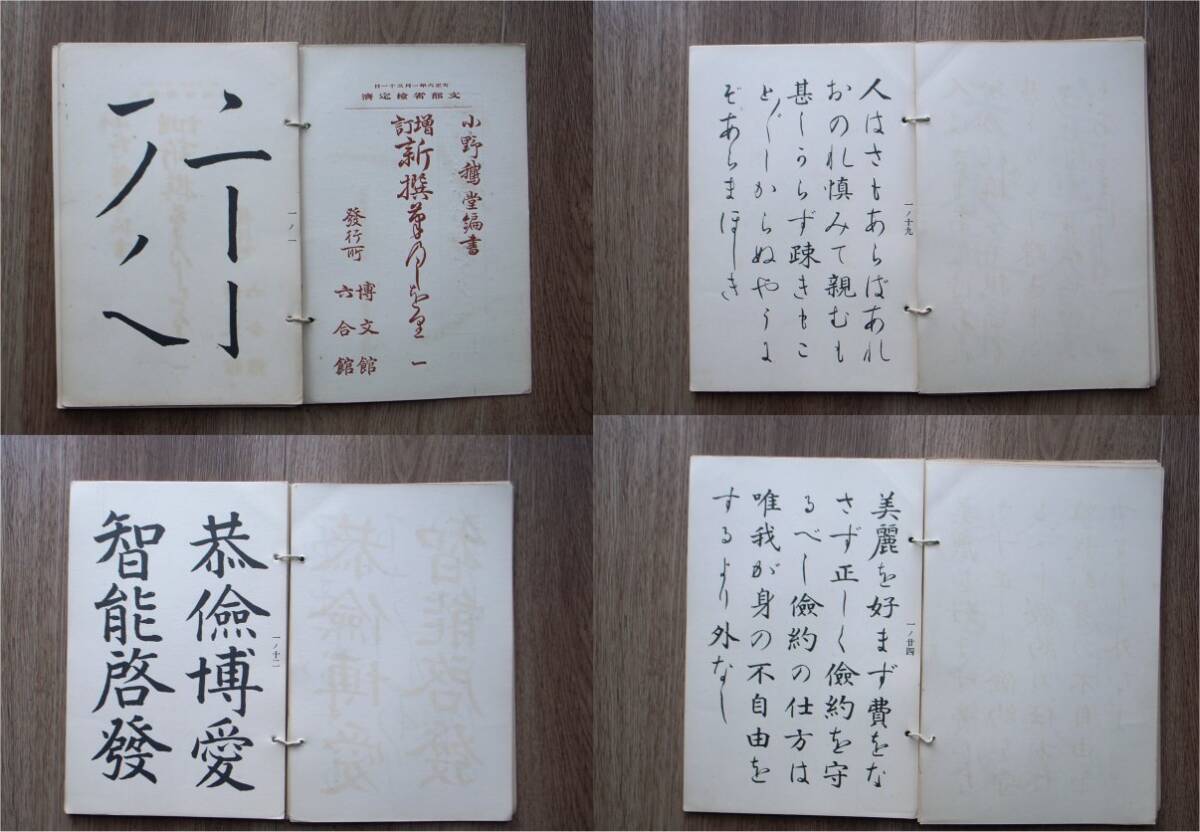 大正六年一月三十一日
文部省檢定濟
小野鵞堂編書
増訂
新撰筆のしをり 一
發行所
博文館
六合館
一ノ一
人はさもあらばあれ
おのれ慎みて親むも
甚しからず疎きもこ
と〴〵しからぬやうに
ぞあらまほしき
一ノ十九
恭儉博愛
智能啓發
一ノ十二
美麗を好まず費をな
さず正しく儉約を守
るべし儉約の仕方は
唯我が身の不自由を
するより外なし
一ノ廿四